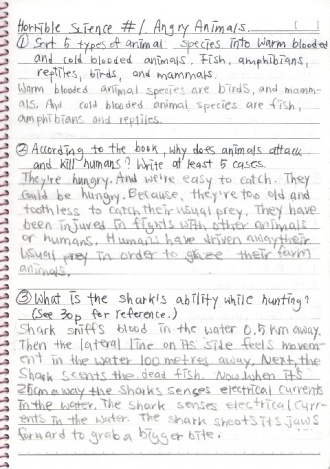 Horrible Science #1 Angry Animals [ ]
① Sort 5 types of animal species into warm blooded
and cold blooded animals. Fish, amphibians,
reptiles, birds, and mammals.
Warm blooded animal species are birds, and mamm-
als. And cold blooded animal species are fish,
amphibians and reptiles.
② According to the book, why does animals attack
and kill humans? Write at least 5 cases.
They're hungry. And we're easy to catch. They
could be hungry. Because, they're too old and
toothless to catch their usual prey. They have
been injured in fights with other animals
or humans. Humans have driven away their
usual prey in order to their farm
animals.
③ What is the shark's ability while hunting?
(See 30p for reference.)
Shark sniffs blood in the water 0.5 km away.
Then the lateral line on its side feels movem-
ent in the water 100 metres away. Next, the
Shark scents the dead fish. Now when it's
25cm away the sharks senses electrical currents
in the water. The shark senses electrical curr-
ents in the water. The shark shoots its jaws
forward to grab a bigger bite.